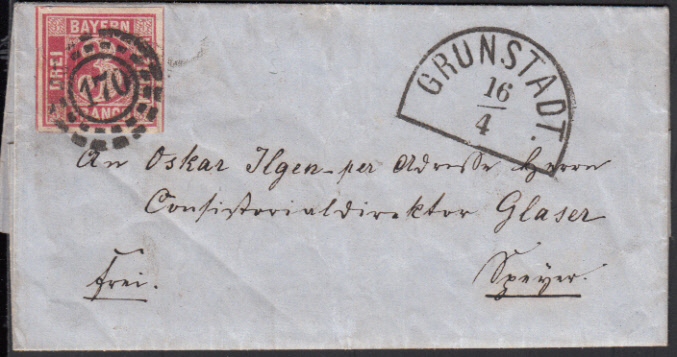 BAYERN
DREI
170
GRÜNSTADT.
16
4
An Oskar Ilgen per Adresse Herrn
Consistorialdirektor Glaser
frei.
Speyer.